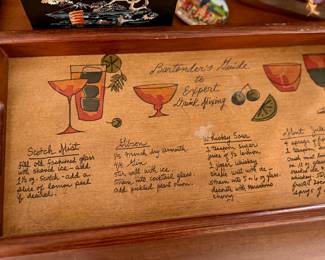 Bartender's Guide
to
Expert
Drink Mixing
Scotch Mist
Fill old fashioned glass
with shaved ice - add
1½ oz. Scotch - add a
slice of lemon peel
if desired.
Gibson
dry vermouth
Gin
Stir well with ice
Strain into cocktail glass
add pickled pearl onion.
Whiskey Sour
1 teaspoon sugar
juice of ½ lemon
whiskey
Shake well with ice -
Strain into 5-6 oz glass.
decorate with maraschino
cherry
Mint
4 sprigs of
1 teaspoon